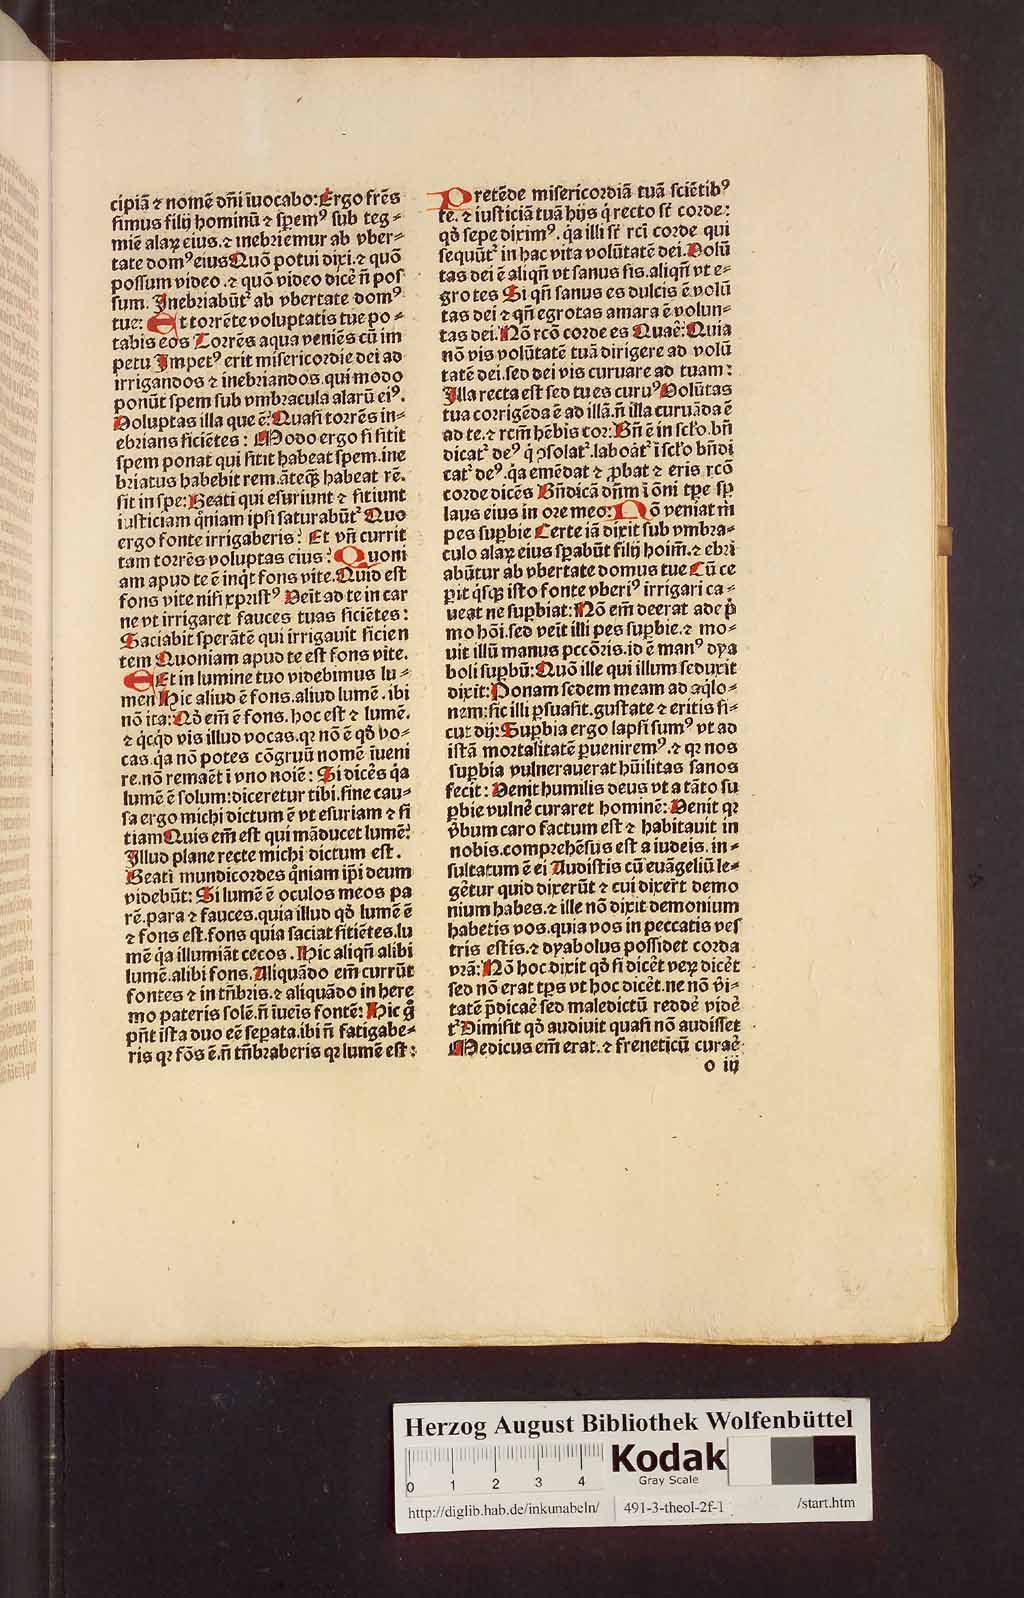 cipiā ⁊ nomē dn̄i īuocabo: Ergo frēs
simus filij hominū ⁊ spem⁹ sub teg⸗
miē alaꝝ eius. ⁊ inebriemur ab vber⸗
tate dom⁹ eius Quō potui dixi. ⁊ quō
possum video. ⁊ quō video dicē n̄ pos
sum. Inebriabūt᷑ ab vbertate dom⁹
tue: Et torrēte voluptatis tue po⸗
tabis eos Torrēs aqua veniēs cū im
petu Impet⁹ erit misericordie dei ad
irrigandos ⁊ inebriandos. qui modo
ponūt spem sub vmbracula alarū ei⁹.
Voluptas illa que ē: Quasi torrēs in⸗
ebrians siciētes: Modo ergo si sitit
spem ponat qui sitit habeat spem. ine
briatus habebit rem. āteqꝫ habeat rē.
sit in spe: Beati qui esuriunt ⁊ sitiunt
iusticiam qm̄iam ipsi saturabūt᷑ Quo
ergo fonte irrigaberis: Et vn̄ currit
tam torrēs voluptas eius: Quoni
am apud te ē inqͥt fons vite. Quid est
fons vite nisi xp̄rist⁹ Veīt ad te in car
ne vt irrigaret fauces tuas siciētes:
Saciabit sperātē qui irrigauit sicien
tem Quoniam apud te est fons vite.
Et in lumine tuo videbimus lu⸗
men Hic aliud ē fons. aliud lumē. ibi
nō ita: Qd̓ em̄ ē fons. hoc est ⁊ lumē.
⁊ qͥcqͥd vis illud vocas. qꝛ nō ē qd̓ vo⸗
cas. qͥa nō potes cōgruū nomē īueni
re. nō remaēt ī vno noīe: Si dicēs qͥa
lumē ē solum: diceretur tibi. sine cau⸗
sa ergo michi dictum ē vt esuriam ⁊ si
tiam Quis em̄ est qui māducet lumē:
Illud plane recte michi dictum est.
Beati mundicordes qm̄iam ip̄i deum
videbūt: Si lumē ē oculos meos pa
rē. para ⁊ fauces. quia illud qd̓ lumē ē
⁊ fons est. fons quia saciat sitiētes. lu
mē qͥa illumiāt cecos. Hic aliqn̄ alibi
lumē. alibi fons. Aliquādo em̄ currūt
fontes ⁊ in tn̄bris. ⁊ aliquādo in here
mo pateris solē. n̄ īueis fontē: Hic gͦ
pn̄t ista duo eē sepata. ibi n̄ fatigabe⸗
ris qꝛ fōs ē. n̄ tn̄braberis qꝛ lumē est:
Pretēde misericordiā tuā sciētib⁹
te. ⁊ iusticiā tuā hijs qͥ recto st̄ corde:
qd̓ sepe dixim⁹. qͥa illi st̄ rcī corde qui
sequūt᷑ in hac vita volūtatē dei. Volū
tas dei ē aliqn̄ vt sanus sis. aliqn̄ vt e⸗
grotes Si qn̄ sanus es dulcis ē volū
tas dei ⁊ qn̄ egrotas amara ē volun⸗
tas dei. Nō rcō corde es Quaē: Quia
nō vis volūtatē tuā dirigere ad volū
tatē dei. sed dei vis curuare ad tuam:
Illa recta est sed tu es curu⁹ Volūtas
tua corrigēda ē ad illā. n̄ illa curuāda ē
ad te. ⁊ rcm̄ hēbis cor: Bn̄ ē in scl̄o. bn̄
dicat᷑ de⁹ qͥ ꝯsolat᷑. laboāt᷑ ī scl̄o bn̄di
cat᷑ de⁹. qͥa emēdat ⁊ ꝓbat ⁊ eris rcō
corde dicēs Bn̄dicā dn̄m ī ōni tp̄e sp̄
laus eius in ore meo: Nō veniat m̄
pes supbie Certe iā dixit sub vmbra⸗
culo alaꝝ eius sꝑabūt filij hoim̄. ⁊ ebri
abūtur ab vbertate domus tue Cū ce
ꝑit qͥsqꝫ isto fonte vberi⁹ irrigari ca⸗
ueat ne supbiat: Nō em̄ deerat ade pͥ
mo hōi. sed veīt illi pes supbie. ⁊ mo⸗
uit illū manus pccōris. id ē man⁹ dya
boli supbū: Quō ille qui illum seduxit
dixit: Ponam sedem meam ad aqͥlo⸗
nem: sic illi ꝑsuasit. gustate ⁊ eritis si⸗
cut dij: Supbia ergo lapsi sum⁹ vt ad
istā mortalitatē ꝑuenirem⁹. ⁊ qꝛ nos
supbia vulnerauerat hūilitas sanos
fecit: Venit humilis deus vt a tāto su
ꝑbie vulnē curaret hominē: Venit qꝛ
v̓bum caro factum est ⁊ habitauit in
nobis. comprehēsus est a iudeis. in⸗
sultatum ē ei Audistis cū euāgeliū le⸗
gētur quid dixerūt ⁊ cui dixert̄ demo
nium habes. ⁊ ille nō dixit demonium
habetis vos. quia vos in peccatis ves
tris estis. ⁊ dyabolus possidet corda
vrā: Nō hoc dixit qd̓ si dicēt veꝝ dicēt
sed nō erat tꝑs vt hoc dicēt. ne nō v̓i⸗
tatē p̄dicaē sed maledictū reddē vidē
t᷑ Dimisit qd̓ audiuit quasi nō audisset
Medicus em̄ erat. ⁊ freneticū curaē
o iij
Herzog August Bibliothek Wolfenbüttel
0 1 2 3 4
Kodak
Gray Scale
http://diglib.hab.de/inkunabeln/ 491-3-theol-2f-1 /start.htm